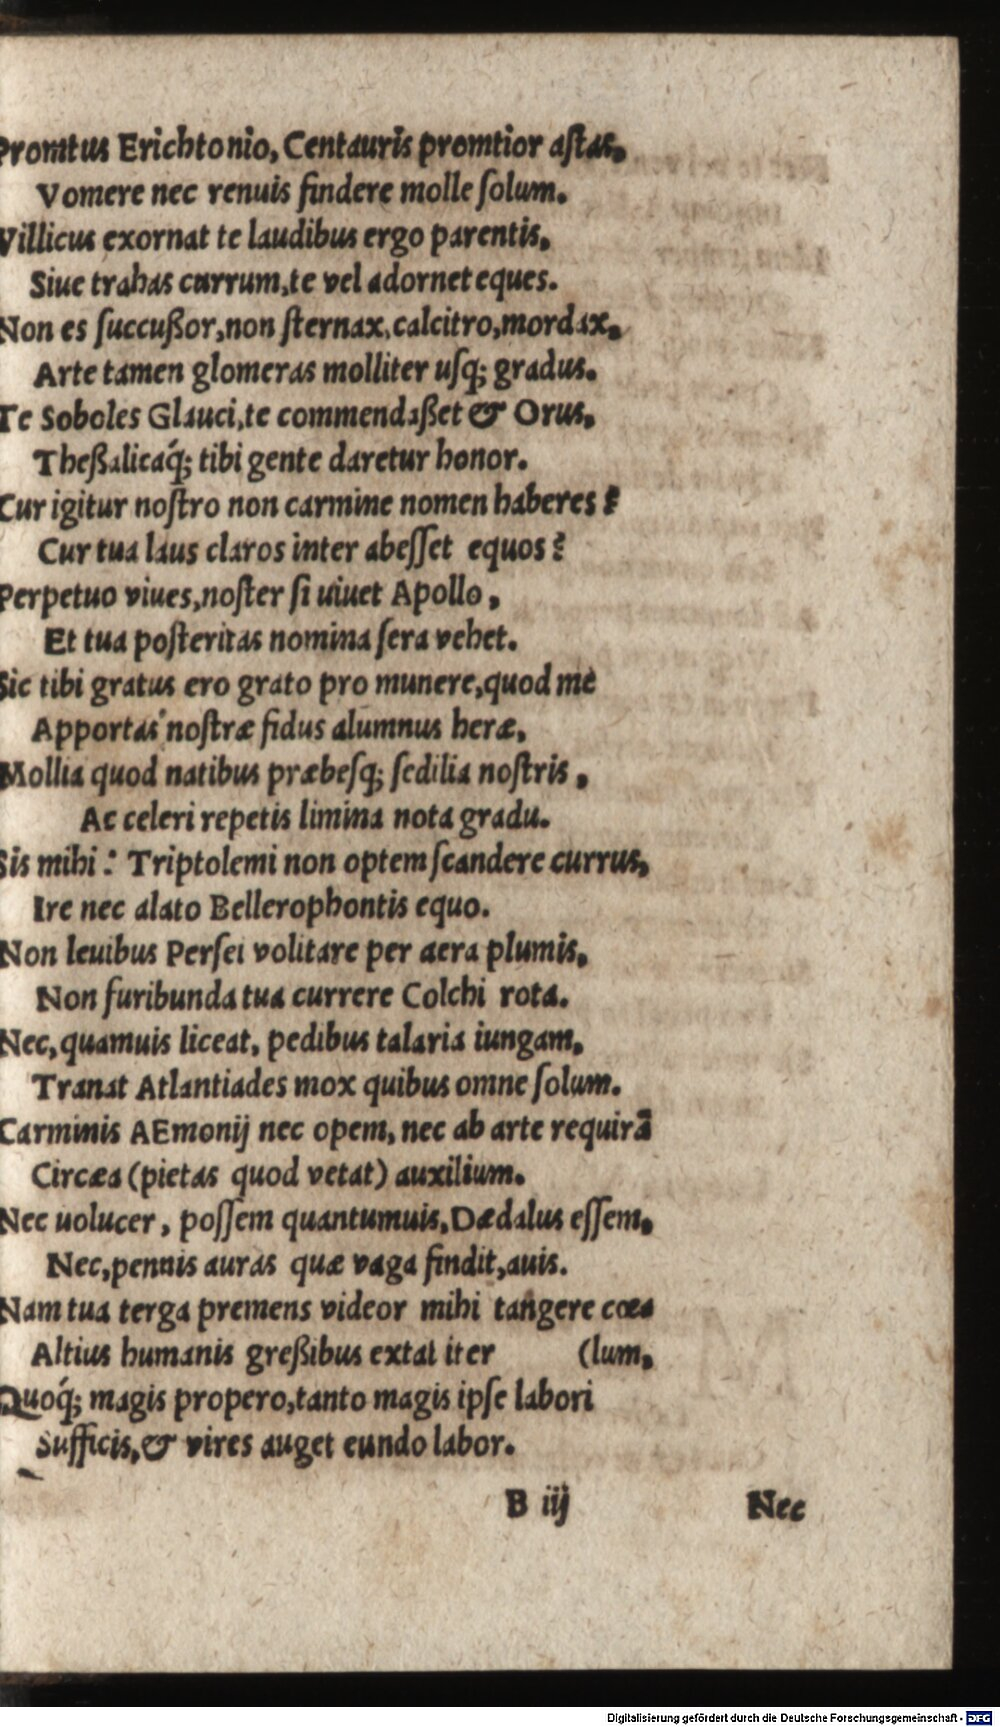 Promtus Erichtonio, Centauris promtior aſtas,
Vomere nec renuis findere molle ſolum.
Villicus exornat te laudibus ergo parentis,
Siue trahas currum, te vel adornet eques.
Non es ſuccußor, non ſternax, calcitro, mordax,
Arte tamen glomeras molliter uſq; gradus.
Te Soboles Glauci, te commendaßet & Orus,
Theßalicaq́; tibi gente daretur honor.
Cur igitur noſtro non carmine nomen haberes?
Cur tua laus claros inter abeſſet equos?
Perpetuo viues, noſter ſi uiuet Apollo,
Et tua poſteritas nomina ſera vehet.
Sic tibi gratus ero grato pro munere, quod me
Apportas noſtræ fidus alumnus heræ,
Mollia quod natibus præbeſq; ſedilia noſtris,
Ac celeri repetis limina nota gradu.
Sis mihi: Triptolemi non optem ſcandere currus,
Ire nec alato Bellerophontis equo.
Non leuibus Perſei volitare per aera plumis,
Non furibunda tua currere Colchi rota.
Nec, quamuis liceat, pedibus talaria iungam,
Tranat Atlantiades mox quibus omne ſolum.
Carminis AEmonij nec opem, nec ab arte requirā
Circæa (pietas quod vetat) auxilium.
Nec uolucer, poſſem quantumuis, Dædalus eſſem,
Nec, pennis auras quæ vaga findit, auis.
Nam tua terga premens videor mihi tangere cœ-
Altius humanis greßibus extat iter (lum,
Quoq́; magis propero, tanto magis ipſe labori
Sufficis, & vires auget eundo labor.
B iij Nec
Digitalisierung gefördert durch die Deutsche Forschungsgemeinschaft - DFG